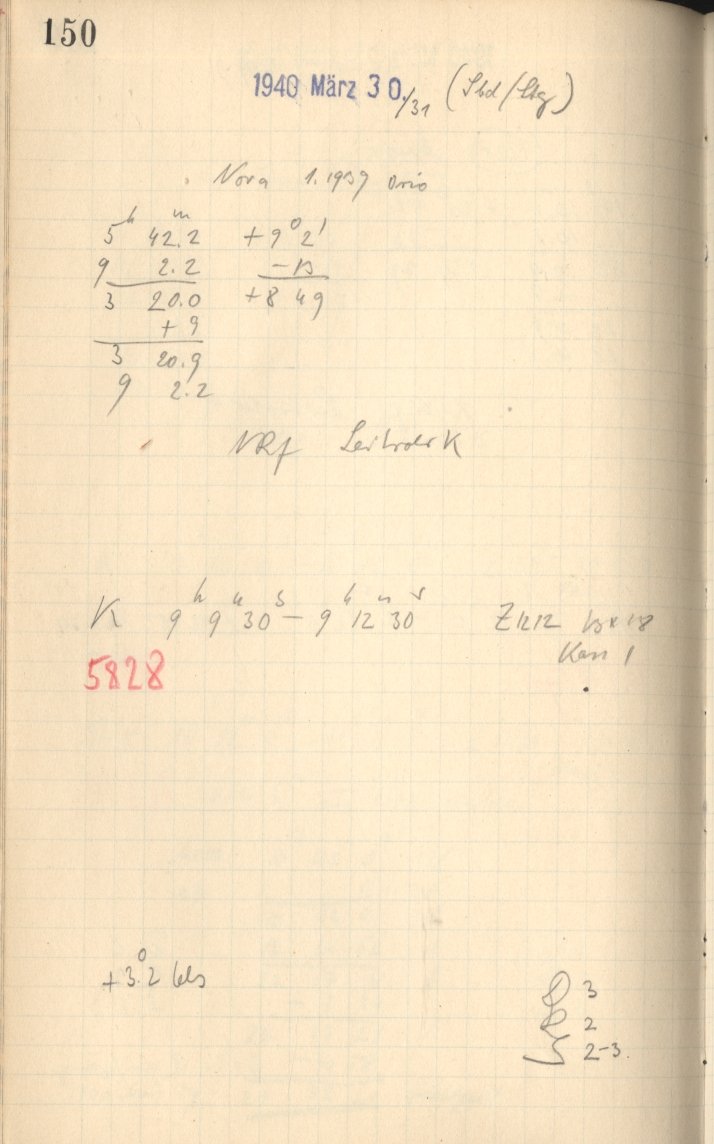 150
1940 März 30./31 (Sbd/Stg)
Nova 1.1939 Orio
5h 42.2m +9° 2'
9 2.2 -13
3 20.0 +8 49
+ 9
3 20.9
9 2.2
NRf K
K 9h 9m 30s – 9h 12m 30s Z1212 13x18
Kass 1
5828
+3.°2
3
2
2-3.